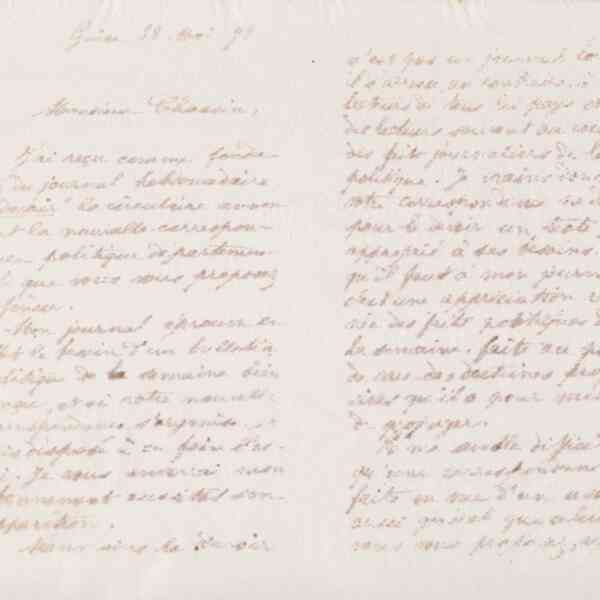 Guise 28 mai 7
Monsieur Chassin,
J'ai reçu comme fonda-
du journal hebdomadaire
Devoir" la circulaire annon
nt la nouvelle correspon-
politique départemen-
que vous vous proposez
Mon journal éprouve en
le besoin d'un bulletin
litique de la semaine bien
et si votre nouvelle
respondance s'organise, je
is disposé à en faire l'es-
i. Je vous enverrai mon
bonnement aussitôt son
pparition.
Mais vous la Devoir
n'est pas un journal lo
il s'adresse au contraire à
lecteurs de tous les pays et
des lecteurs suivant au cou
des faits journaliers de la
politique. Je crains donc
votre correspondance ne
pour le devoir un
approprié à ses besoins.
qu'il faut à mon journ
c'est une appréciation
des faits politiques d
la semaine, faite au po
de vues des doctrines pro
qu'il a pour mis
de propager.
Il me semble diffici
qu'une correspondance
faite en vue d'un u
aussi général que celui
vous vous proposez,